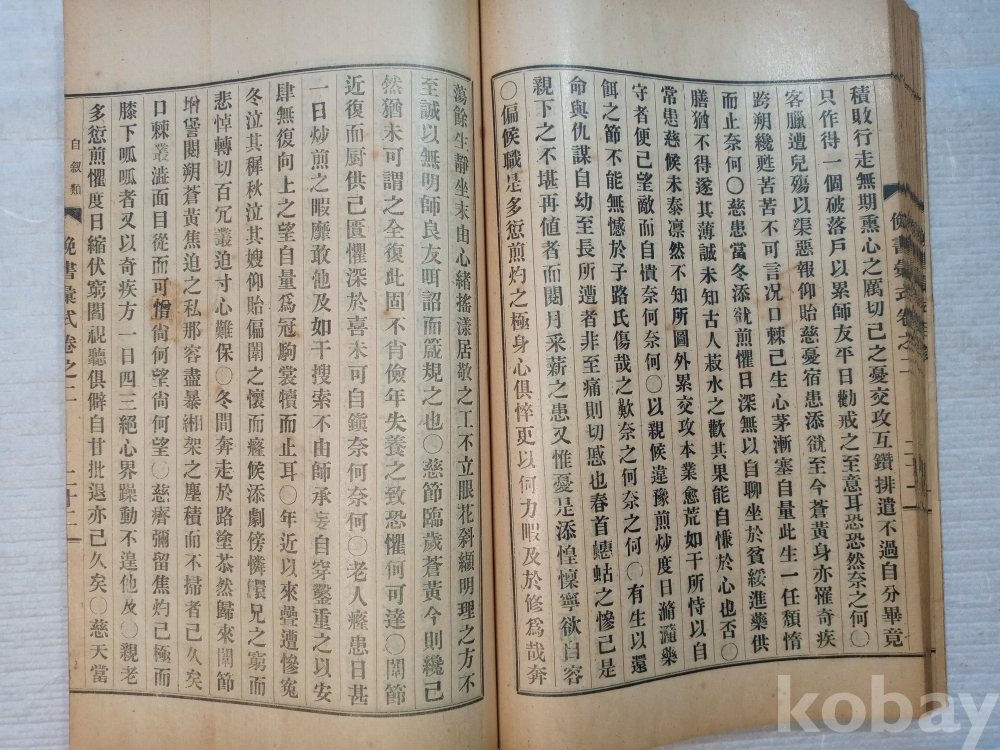 積敗行走無期熏心之厲切己之憂交攻互鑽排遣不過自分畢竟
只作得一個破落戶以累師友平日勸戒之至意耳恐恐然奈之何〇
客臘遭兒殤以渠惡報仰貽慈憂宿患添欿至今蒼黃身亦罹奇疾
跨朔纔甦苦苦不可言况口棘己生心茅漸塞自量此生一任頹惰
而止奈何〇慈患當冬添欿煎懼日深無以自聊坐於貧綏進藥供
膳猶不得遂其薄誠未知古人菽水之歡其果能自愜於心也否〇
常患慈候未泰凛然不知所圖外累交攻本業愈荒如干所恃以自
守者便已望敵而自憒奈何奈何〇以親候違豫煎炒度日滫瀡藥
餌之節不能無憾於子路氏傷哉之歎奈之何奈之何〇有生以還
命與仇謀自幼至長所遭者非至痛則切慼也春首蟪蛄之慘己是
親下之不堪再値者而閱月采薪之患又惟憂是添惶懍寧欲自容
〇偏候職是多愆煎灼之極身心俱悴更以何力暇及於修爲哉奔
俛書彙式卷之二
二十一
蕩餘生靜坐未由心緖搖漾居敬之工不立眼花斜纈明理之方不
至誠以無明師良友呵詔而箴規之也〇慈節臨歲蒼黃今則纔己
然猶未可謂之全復此固不肖儉年失養之致恐懼何可達〇闈節
近復而厨供己匱懼深於喜未可自鎭奈何奈何〇老人癃患日甚
一日炒煎之暇靡敢他及如干搜索不由師承妄自穿鑿重之以安
肆無復向上之望自量爲冠駒裳犢而止耳〇年近以來疊遭慘寃
冬泣其穉秋泣其嫂仰貽偏闈之懷而癃候添劇傍憐儇兄之窮而
悲悼轉切百冗叢迫寸心難保〇冬間奔走於路塗恭然歸來闈節
增愆閱朔蒼黃焦迫之私那容盡暴緗架之塵積而不掃者己久矣
口棘叢滋面目從而可憎尙何望尙何望〇慈癠彌留焦灼己極而
膝下呱呱者又以奇疾方一日四三絕心界躁動不遑他及〇親老
多愆煎懼度日縮伏窮閭視聽俱僻自甘批退亦己久矣〇慈天當
自叙類
俛書彙式卷之二
二十二
kobay